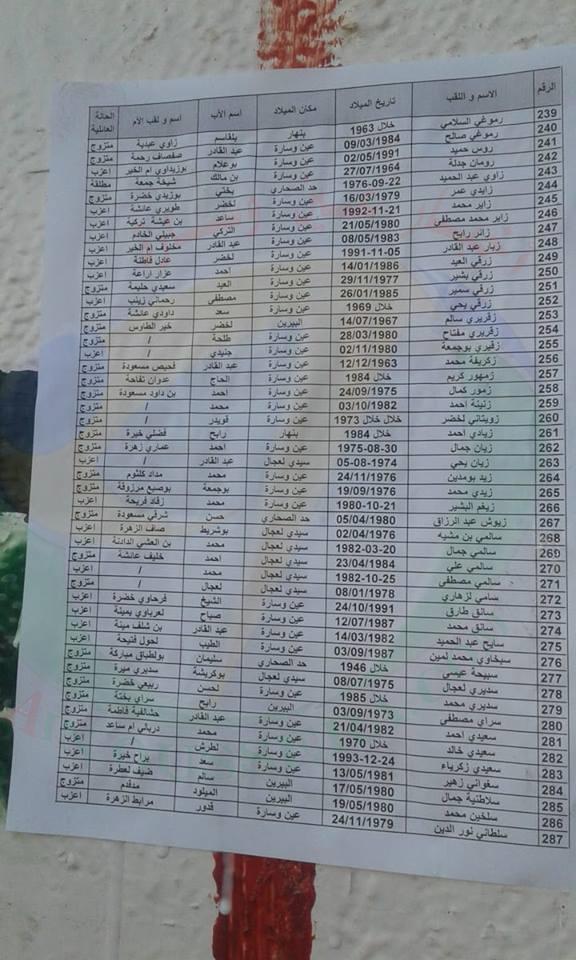 الرقم الاسم و اللقب تاريخ الميلاد مكان الميلاد اسم الأب اسم و لقب الأم الحالة العائلية
239 رموغي السلامي خلال 1963 بنهار بلقاسم زاوي عبدية متزوج
240 رموغي صالح 09/03/1984 عين وسارة عبد القادر صفصاف رحمة متزوج
241 روس حميد 02/05/1991 عين وسارة بوعلام بوزيداوي ام الخير اعزب
242 رومان جدلة 27/07/1964 عين وسارة بن مالك شيخة جمعة مطلقة
243 زاوي عبد الحميد 1976-09-22 حد الصحاري بختي بوزيدي خضرة متزوج
244 زايدي عمر 16/03/1979 عين وسارة لخضر طويري عائشة اعزب
245 زاير محمد 1992-11-21 عين وسارة ساعد بن عيشة تركية اعزب
246 زاير محمد مصطفى 21/05/1980 عين وسارة التركي جبيلي الخادم اعزب
247 زائر رابح 08/05/1983 عين وسارة عبد القادر مخلوف ام الخير اعزب
248 زبار عبد القادر 1991-11-05 عين وسارة لخضر عادل فاطنة اعزب
249 زرقي العيد 14/01/1986 عين وسارة احمد عزار اراعة متزوج
250 زرقي بشير 29/11/1977 عين وسارة العيد سعيدي حليمة متزوج
251 زرقي سمير 26/01/1985 عين وسارة مصطفى رحماني زينب متزوج
252 زرقي يحي خلال 1969 عين وسارة سعد داودي عائشة متزوج
253 زفريري سالم 14/07/1967 البيرين لخضر خير الطاوس متزوج
254 زفريري مفتاح 28/03/1980 عين وسارة طلحة / متزوج
255 زفيري بوجمعة 02/11/1980 عين وسارة جنيدي / اعزب
256 زكريفة محمد 12/12/1963 عين وسارة عبد القادر فحيص مسعودة متزوج
257 زمهور كريم خلال 1984 عين وسارة الحاج عدوان تفاحة متزوج
258 زمور كمال 24/09/1975 عين وسارة احمد بن داود مسعودة متزوج
259 زنينة احمد 03/10/1982 عين وسارة محمد / متزوج
260 زويتاني لخضر خلال خلال 1973 عين وسارة قويدر / متزوج
261 زيادي احمد خلال 1984 بنهار رابح فضلي خيرة متزوج
262 زيان جمال 1975-08-30 عين وسارة احمد عماري زهرة متزوج
263 زيان يحي 05-08-1974 سيدي لعجال عبد القادر / اعزب
264 زيد بومدين 24/11/1976 عين وسارة محمد مداد كلثوم متزوج
265 زيدي محمد 19/09/1976 عين وسارة بوجمعة بوصبع مرزوقة متزوج
266 زيغم البشير 1980-10-21 عين وسارة محمد زفاد فريحة متزوج
267 زيوش عبد الرزاق 05/04/1980 حد الصحاري حسن شرقي مسعودة متزوج
268 سالمي بن مشيه 02/04/1976 سيدي لعجال بوشريط صاف الزهرة اعزب
269 سالمي جمال 1982-03-20 سيدي لعجال محمد بن العشي الدائنة اعزب
270 سالمي علي 23/04/1984 سيدي لعجال احمد خليف عائشة متزوج
271 سالمي مصطفى 1982-10-25 سيدي لعجال محمد / اعزب
272 سامي لزهاري 08/01/1978 سيدي لعجال لعجال / متزوج
273 سائق طارق 24/10/1991 عين وسارة الشيخ فرحاوي خضرة اعزب
274 سائق محمد 12/07/1987 عين وسارة صباح لعرباوي يمينة اعزب
275 سايح عبد الحميد 14/03/1982 عين وسارة عبد القادر بن شلف مينة اعزب
276 سبخاوي محمد لمين 03/09/1987 عين وسارة الطيب لحول فتيحة اعزب
277 سبيحة عيسى خلال 1946 حد الصحاري سليمان بولطباق مباركة متزوج
278 سديري لعجال 08/07/1975 سيدي لعجال بوكريشة سديري ميرة متزوج
279 سديري محمد خلال 1985 عين وسارة لحسن ربيعي خضرة متزوج
280 سراي مصطفى 03/09/1973 البيرين رابح سراي بختة متزوج
281 سعيدي احمد 21/04/1982 عين وسارة عبد القادر حشالفية فاطمة متزوج
282 سعيدي خالد خلال 1970 عين وسارة محمد دربالي ام ساعد متزوج
283 سعيدي زكرياء 1993-12-24 عين وسارة لطرش / اعزب
284 سغواني زهير 13/05/1981 عين وسارة سعد براح خيرة اعزب
285 سلاطنية جمال 17/05/1980 البيرين سالم ضيف لعطرة اعزب
286 سلخين محمد 19/05/1980 البيرين الميلود مدقدم متزوج
287 سلطاني نور الدين 24/11/1979 عين وسارة قدور مرابط الزهرة اعزب